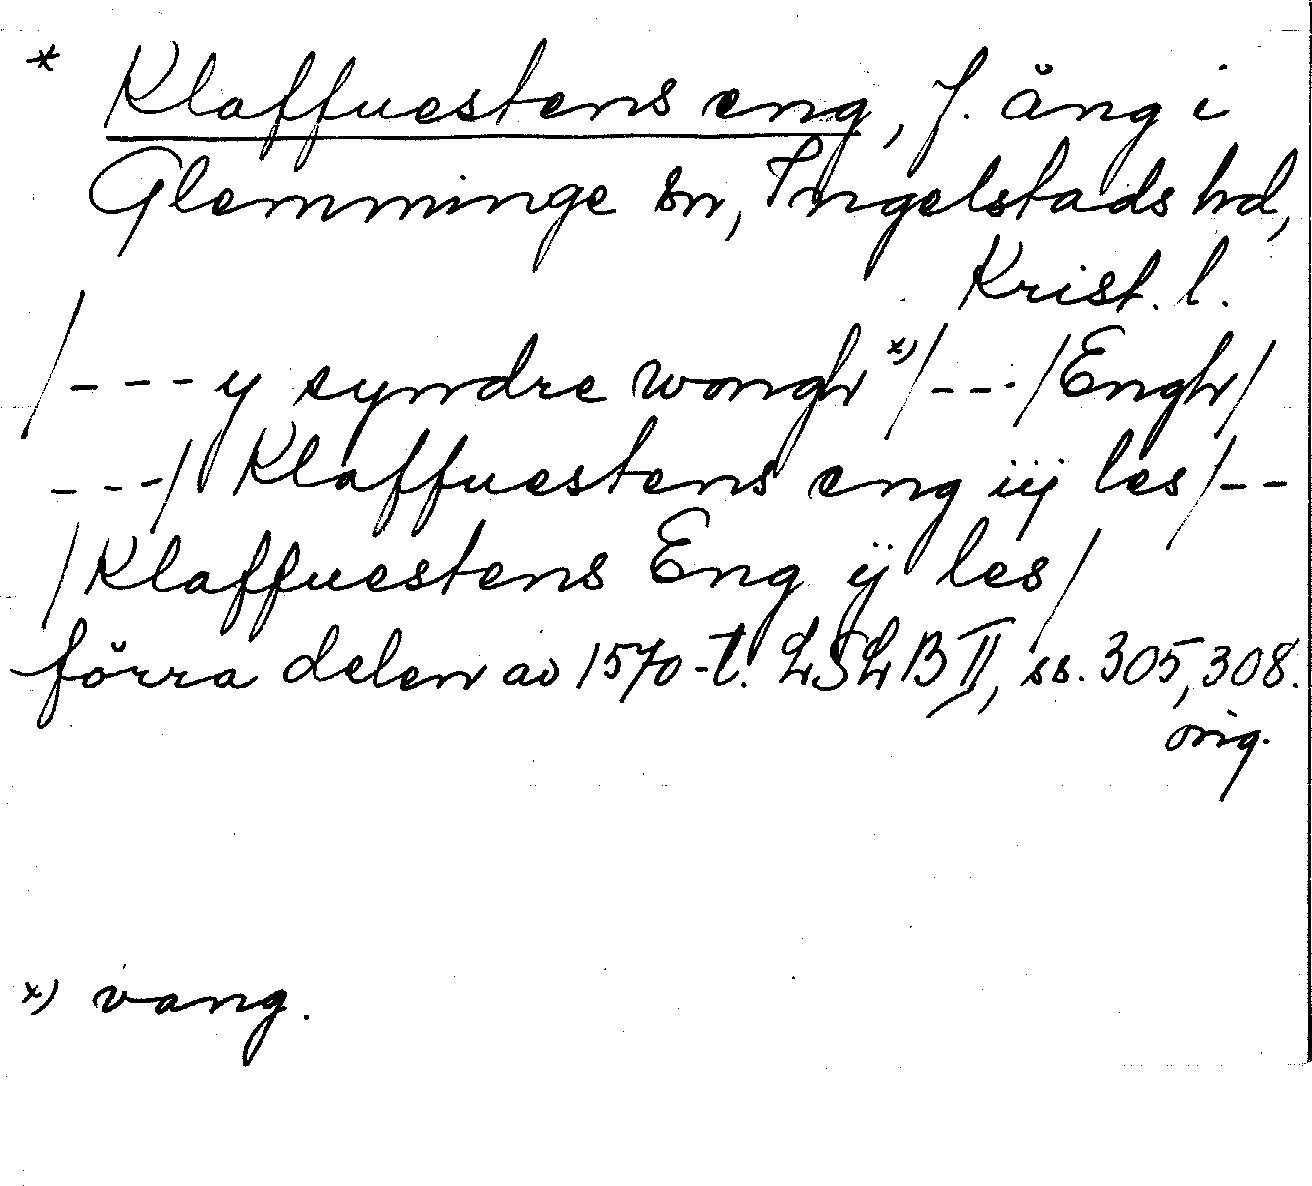 * Klaffuestens eng, f. äng i
Glemminge sn, Ingelstads hd,
Krist. l.
/---y syndre wongh x)/---/Engh/
---/ Klaffuestens eng iij les/--
/Klaffuestens Eng ij les/
förra delen av 1570-t. LSLB II, ss. 305, 308.
orig.
x) vang.